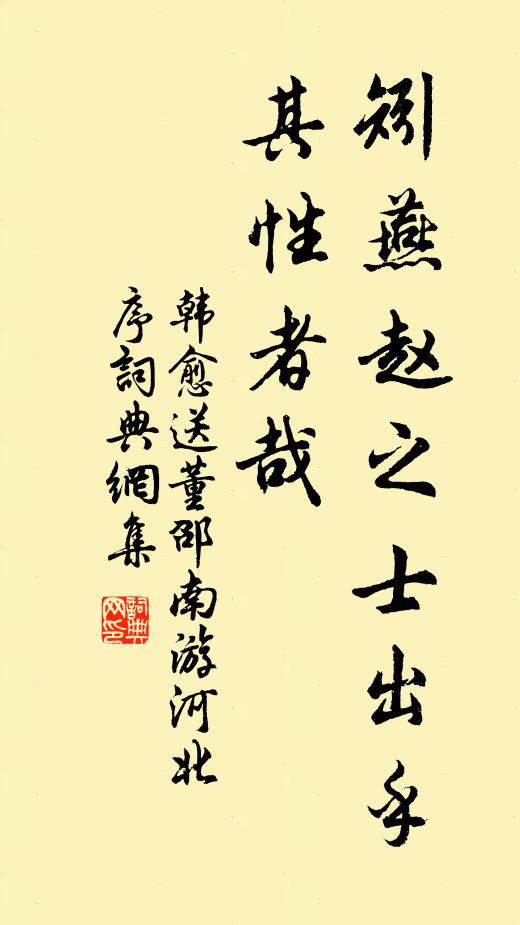 矧燕赵之士出乎
其性者哉
韩愈送董邵南游河北
序詞典網集
詞典
网印